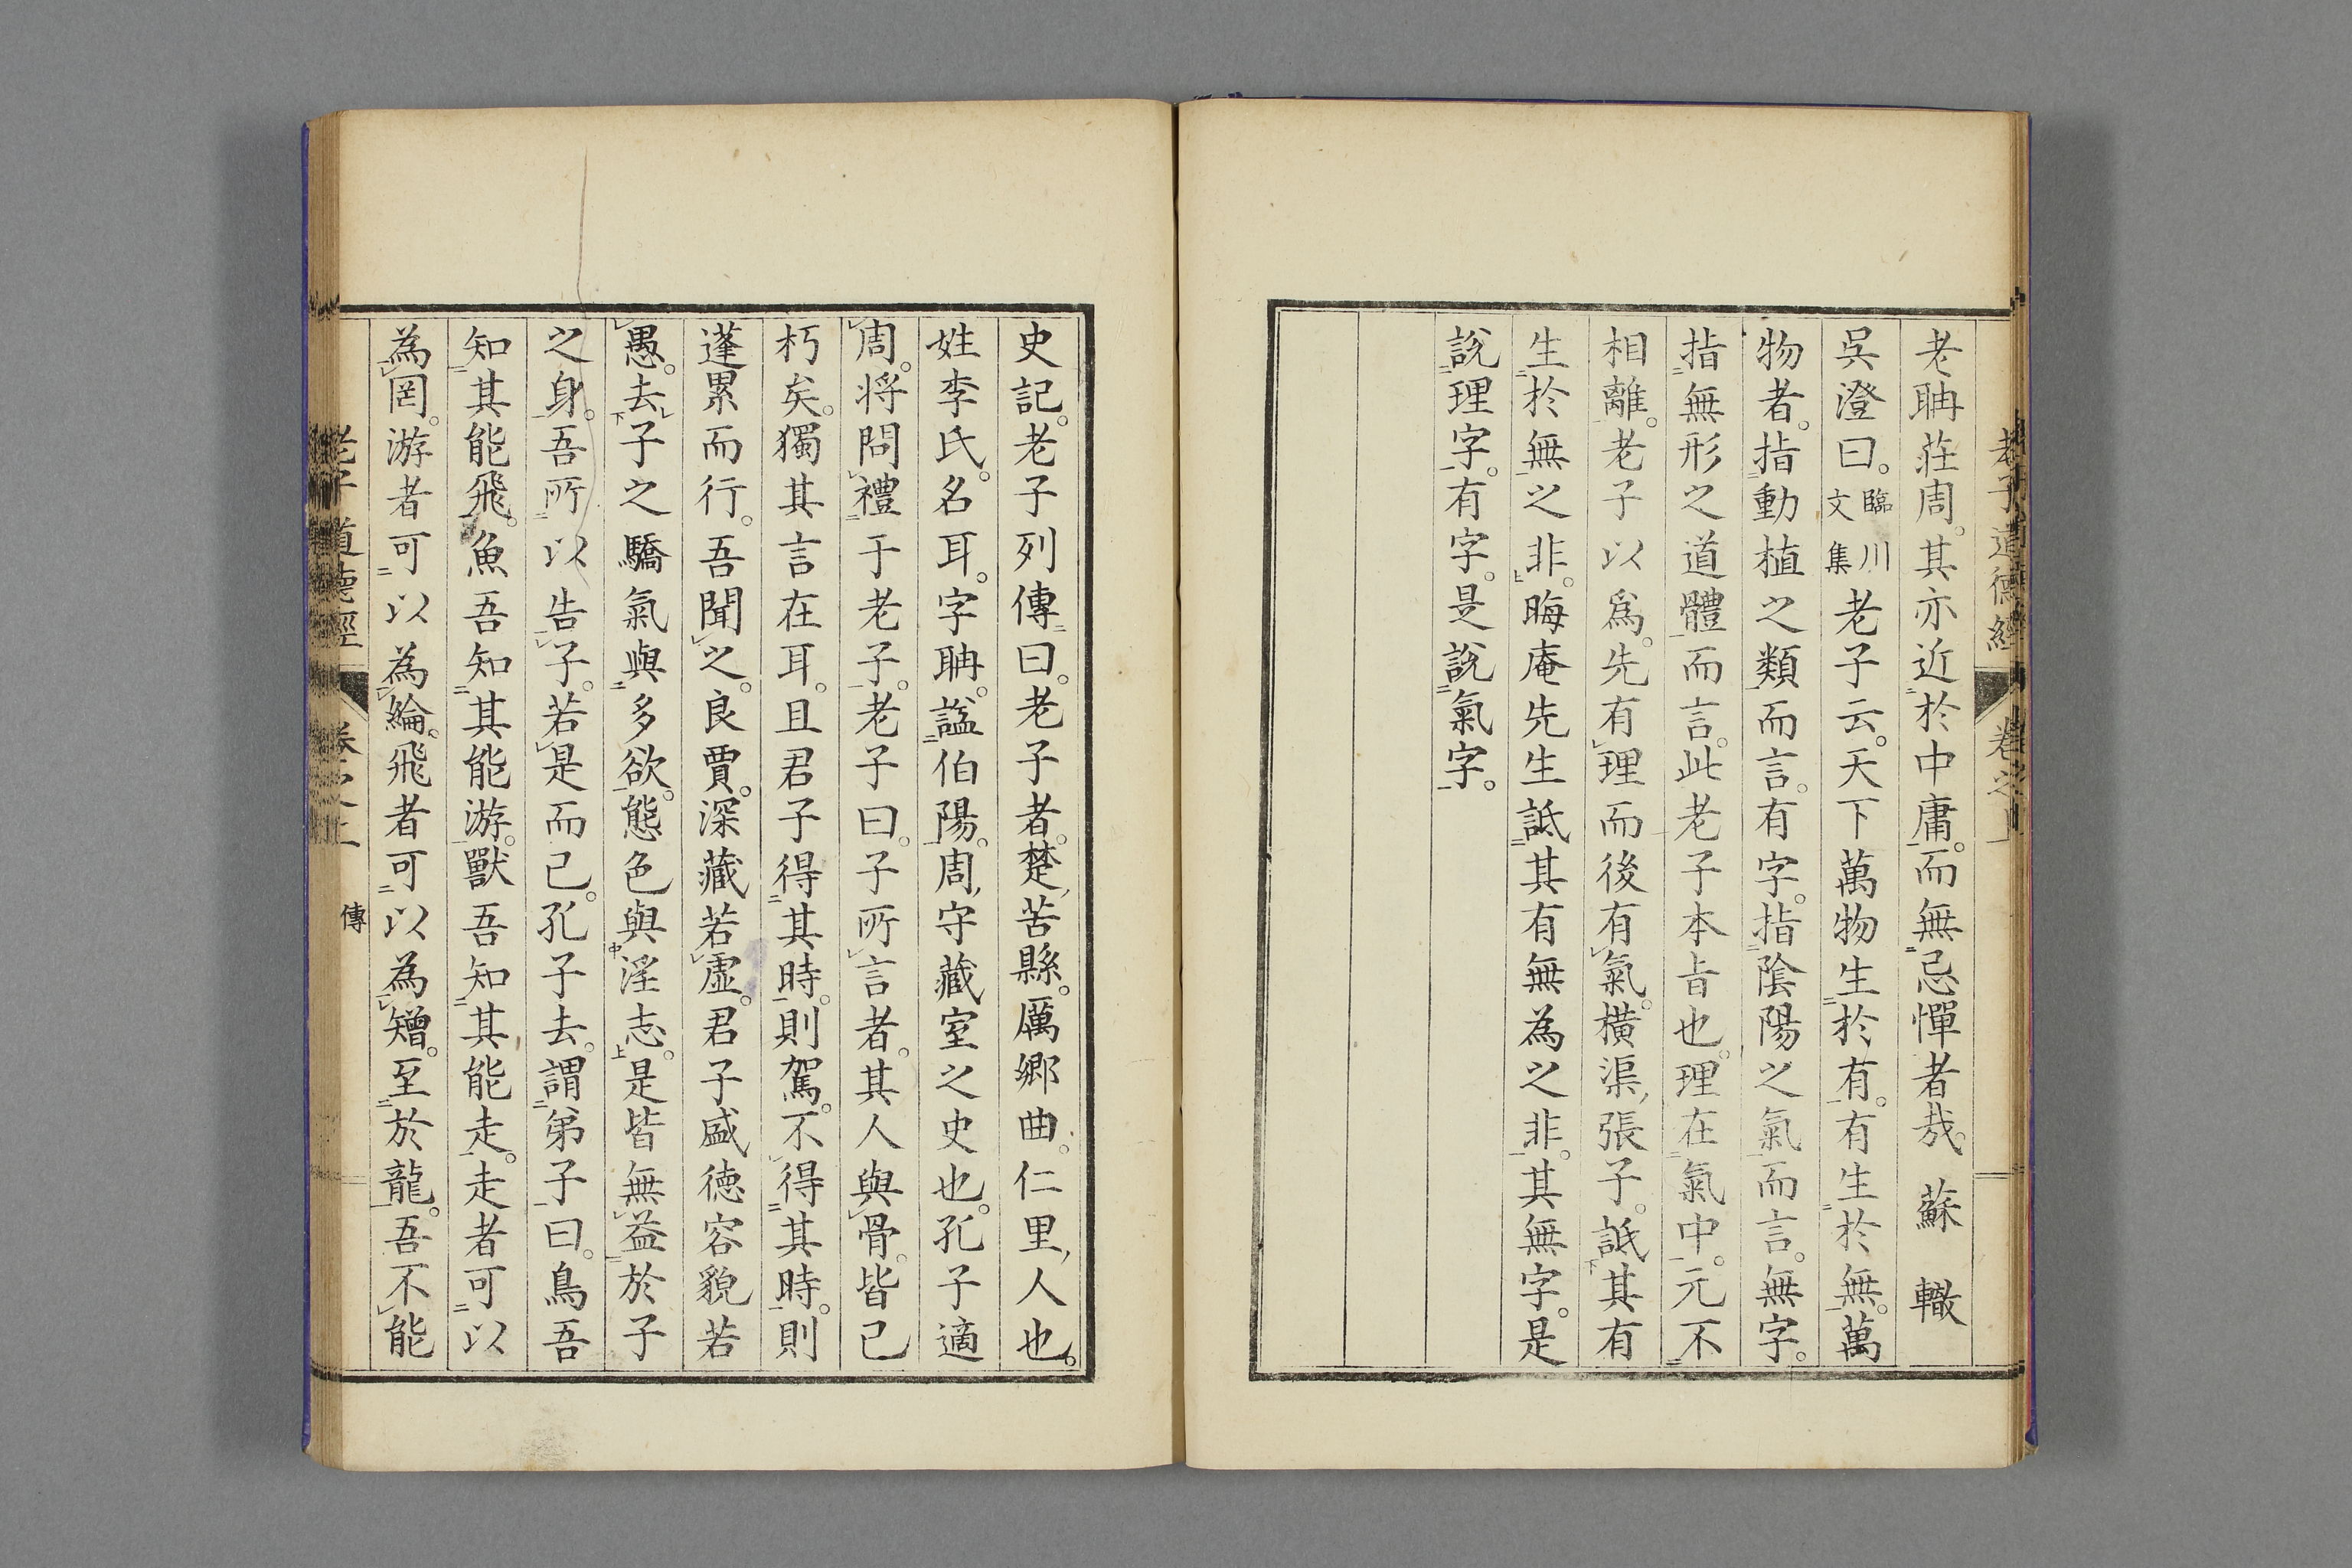 老子道德經 卷之上
老聃莊周。其亦近於中庸。而無忌憚者哉。 蘇 轍
吳澄曰。臨川文集老子云。天下萬物生於有。有生於無。萬
物者。指動植之類而言。有字。指陰陽之氣而言。無字。
指無形之道體而言。此老子本旨也。理在氣中。元不
相離。老子以爲。先有理而後有氣。橫渠張子。詆其有
生於無之非。晦庵先生詆其有無為之非。其無字。是
說理字。有字。是說氣字。
史記。老子列傳曰。老子者。楚苦縣。厲鄉曲。仁里人也。
姓李氏。名耳。字聃。諡伯陽。周守藏室之史也。孔子適
周。將問禮于老子。老子曰。子所言者。其人與骨。皆已
朽矣。獨其言在耳。且君子得其時。則駕。不得其時。則
蓬累而行。吾聞之。良賈。深藏若虛。君子盛德容貌若
愚。去子之驕氣與多欲。態色與淫志。是皆無益於子
之身。吾所以告子。若是而已。孔子去。謂弟子曰。鳥吾
知其能飛。魚吾知其能游。獸吾知其能走。走者可以
為罔。游者可以為綸。飛者可以為矰。至於龍。吾不能
老子道德經 卷之上 傳